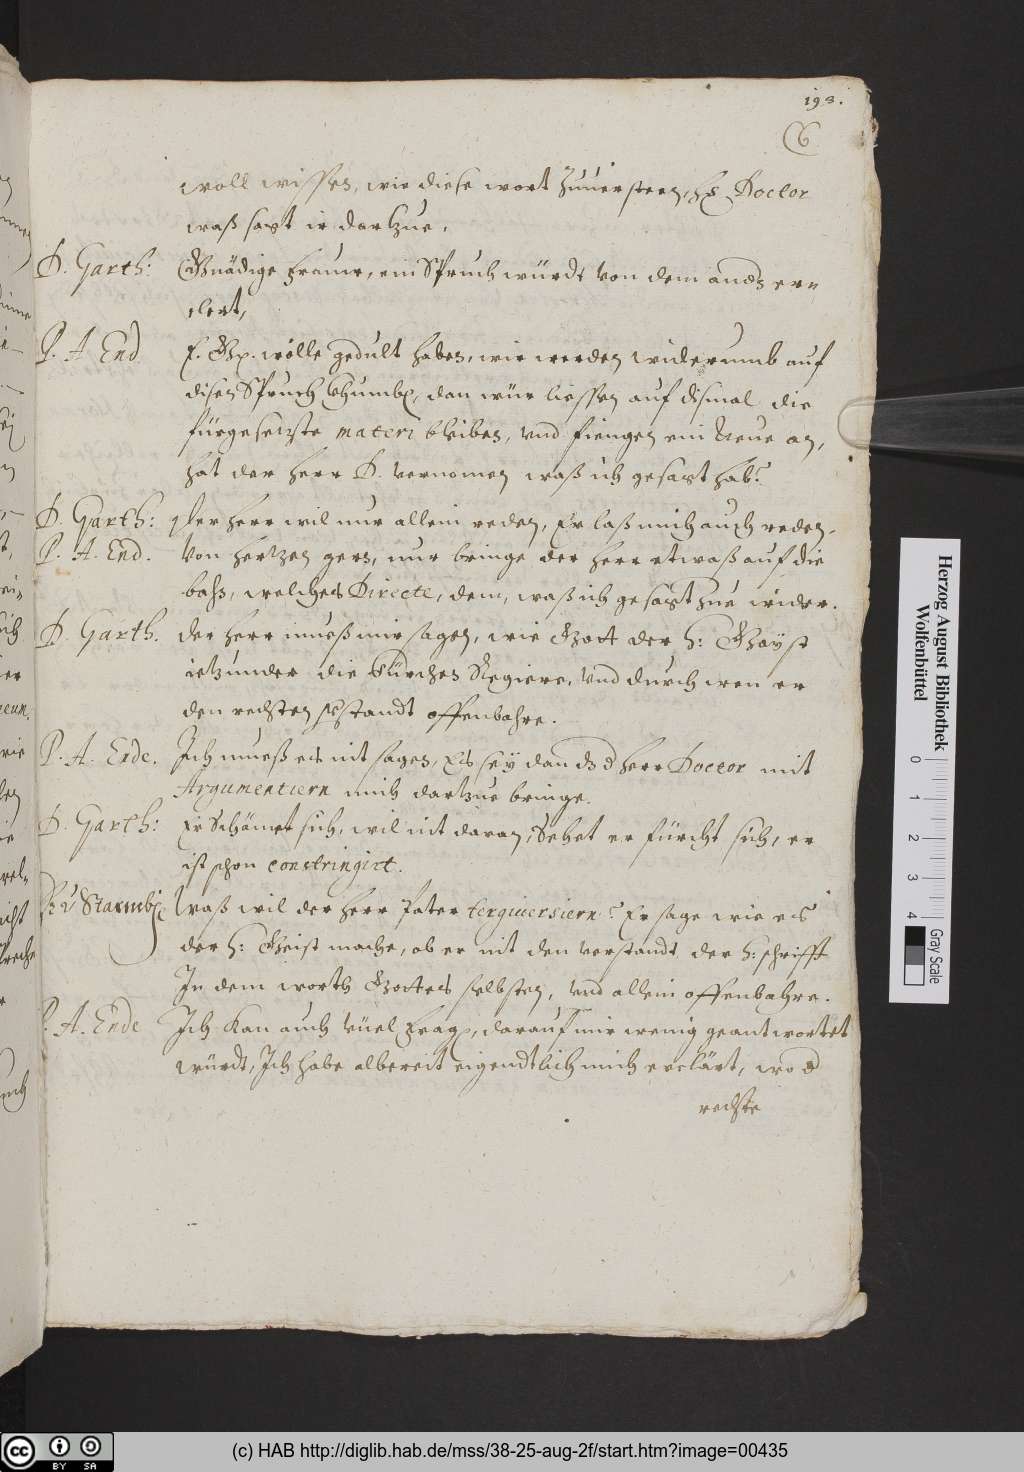 193.
6
woll wissen, wie diese wort Zuuersteen, Hr Doctor
waß sagt ir dartzue.
D. Garth: Gnädige Frauw, ein Spruch würdt von dem andern er=
clert,
P. A End E. G. wölle gedult haben, wir werden widerumb auf
disen Spruch khumben, dan wür liessen auf dismal die
fürgesetzte materi bleiben, vnd fiengen ein Neue an,
hat der herr D. vernomen waß ich gesagt hab?
D. Garth: Der herr wil nur allein reden, Er laß mich auch reden.
P. A. End. Von hertzen gern, nur bringe der herr etwaß auf die
bahn, welches Directe, dem, waß ich gesagt zue wider.
D. Garth. der herr mueß mir sagen, wie Gott der h: Gayst
ietzunder die Kürchen Regiere, vnd durch wen er
den rechten verstandt offenbahre.
P. A. Ende. Ich mueß es nit sagen, Es sey dan ds d herr Doctor mit
Argumentiern mich dartzue bringe.
D. Garth: Er Schämet sich, wil nit daran, Sehet er fürcht sich, er
ist schon constringirt.
H v Starmbg Waß wil der herr Pater tergiuersiern? Er sage wie es
der h: Geist mache, ob er nit den verstandt der h: schrifft
In dem worth Gottes selbsten, vnd allein offenbahre.
P. A. Ende Ich kan auch vüel fragen, darauf mir wenig geantwortet
würdt, Ich habe albereit eigendtlich mich erclärt, wo d
rechte
Herzog August Bibliothek
Wolfenbüttel
0 1 2 3 4
Gray Scale
cc BY SA
(c) HAB http://diglib.hab.de/mss/38-25-aug-2f/start.htm?image=00435